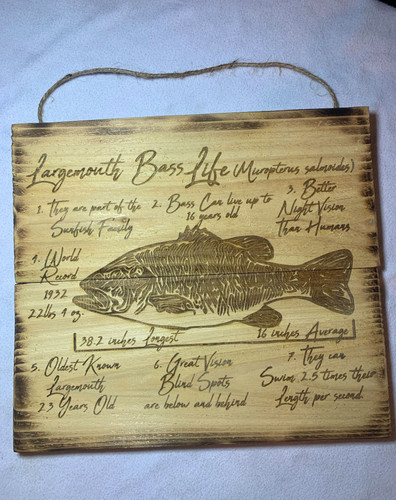 Largemouth Bass Life (Micropterus salmoides)
1. They are part of the
Sunfish Family
2. Bass Can live up to
16 years old
3. Better
Night Vision
Than Humans
4. World
Record
1932
22lbs 4 oz.
38.2 inches Longest
16 inches Average
5. Oldest Known
Largemouth
23 Years Old
6. Great Vision
Blind Spots
are below and behind
7. They can
Swim 2.5 times their
Length per second.